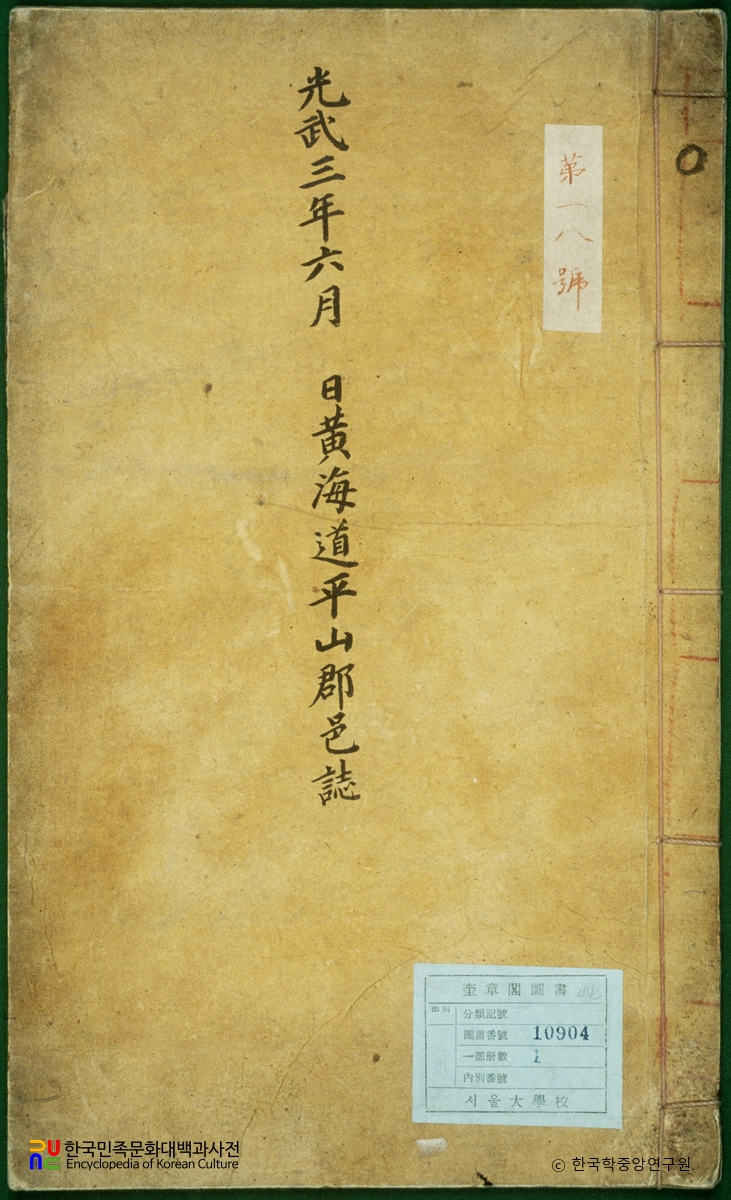 第一八號
光武三年六月 日黃海道平山郡邑誌
奎章閣圖書
部別
分類記號
圖書番號 10904
一部册數 1
內別番號
서울大學校
한국민족문화대백과사전
Encyclopedia of Korean Culture
© 한국학중앙연구원